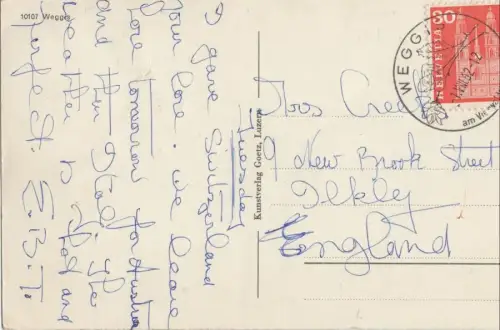 10107 Weggis
Tuesday
I gave Switzerland
your love. We leave
here tomorrow for Austria
and then Italy. The
weather is good and
perfect. E.B.T.
Kunstverlag Goetz, Luzern
HELVETIA
30
WEGGIS
am Vi
Creet
9 New Brook Street
Ilkley
England